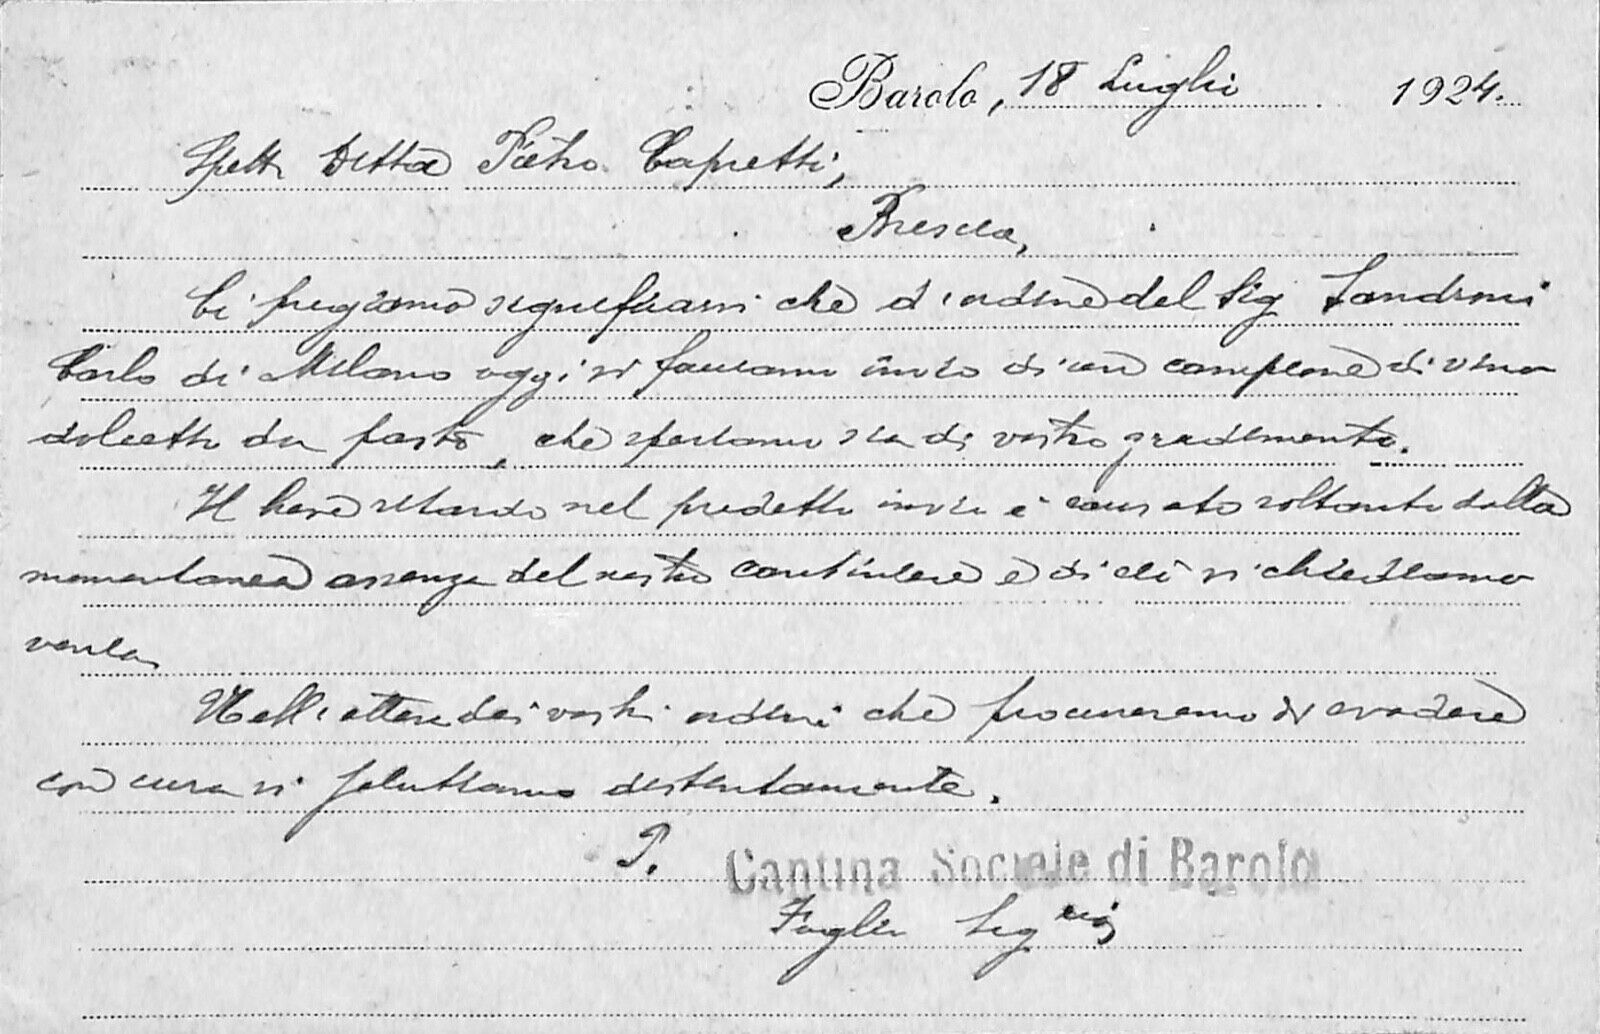 Barolo, 18 Luglio 1924.
Spett. Ditta Pietro Capretti,
Brescia,
Ci pregiamo significarvi che d'ordine del Sig. Landroni
Carlo di Milano oggi vi facciamo invio di un campione di vino
dolcetto da pasto, che speriamo sia di vostro gradimento.
Il lieve ritardo nel predetto invio è causato soltanto dalla
momentanea assenza del nostro cantiniere e di ciò vi chiediamo
venia.
Nell'attesa dei vostri ordini che procureremo di evadere
con cura vi salutiamo distintamente.
P. Cantina Sociale di Barolo